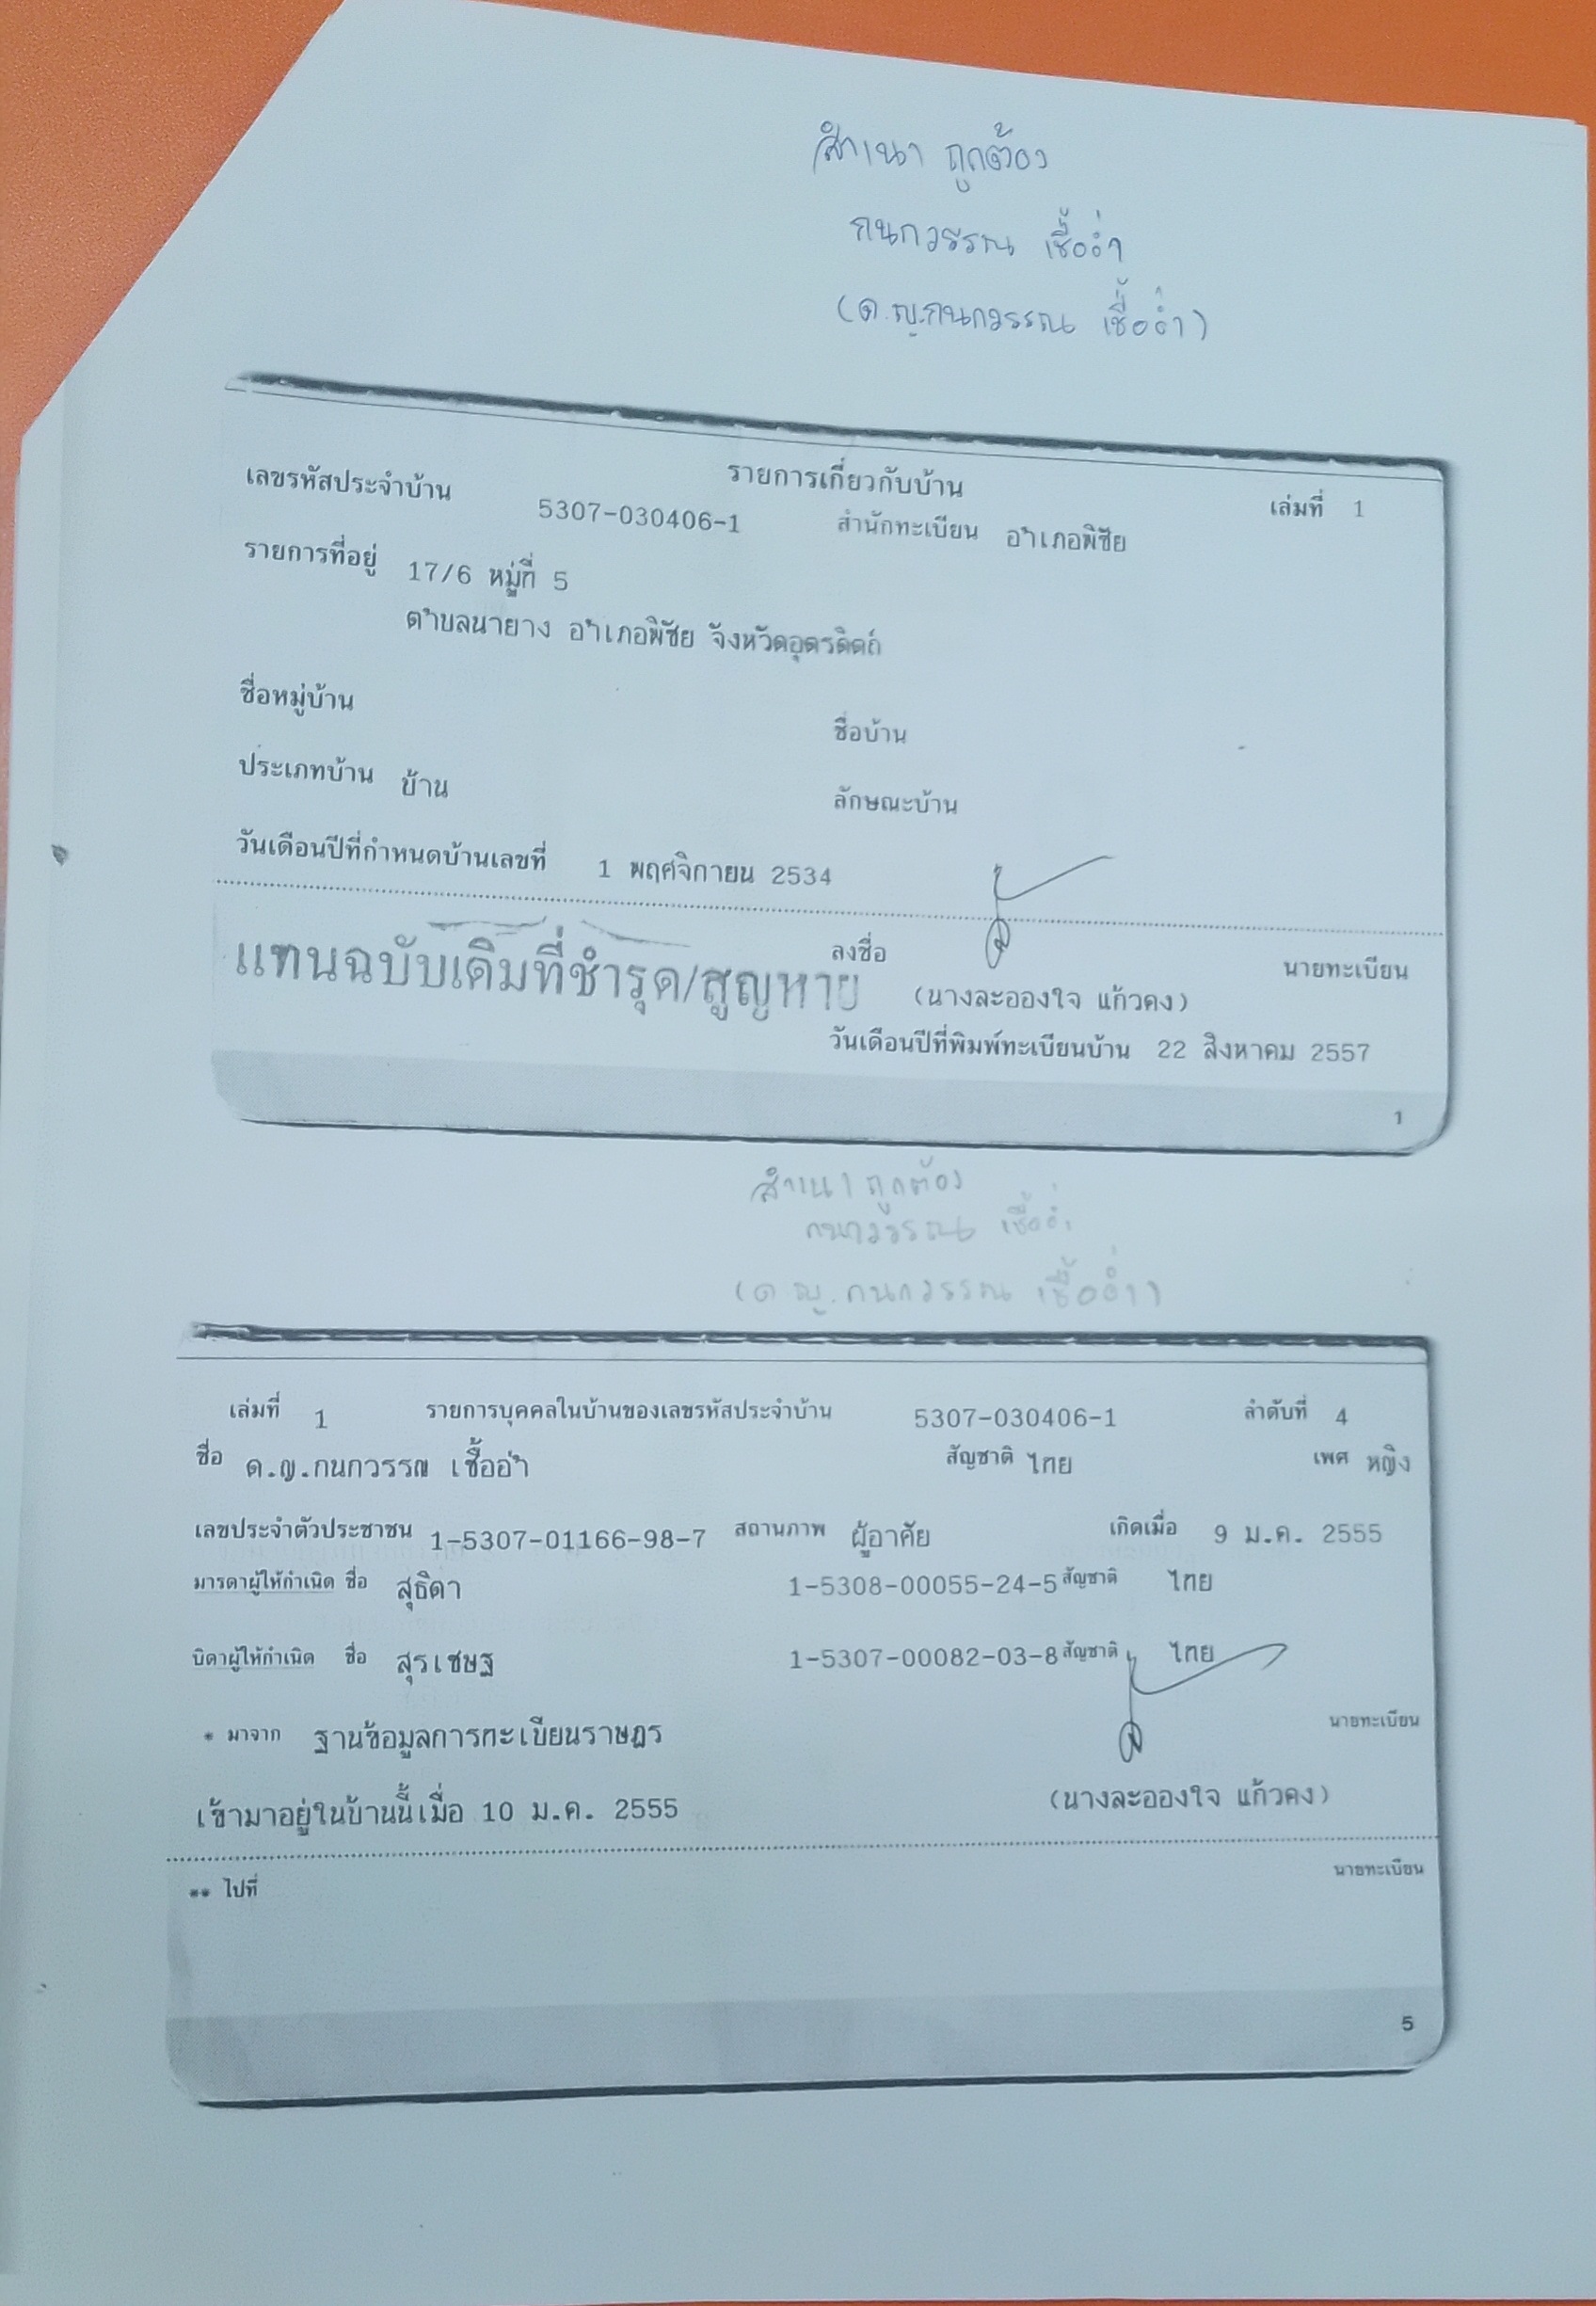 สำเนา ถูกต้อง
กนกวรรณ เชื้ออ่ำ
(ด.ญ.กนกวรรณ เชื้ออ่ำ)
รายการเกี่ยวกับบ้าน เล่มที่ 1
เลขรหัสประจำบ้าน 5307-030406-1 สำนักทะเบียน อำเภอพิชัย
รายการที่อยู่ 17/6 หมู่ที่ 5
ตำบลนายาง อำเภอพิชัย จังหวัดอุตรดิตถ์
ชื่อหมู่บ้าน ชื่อบ้าน
ประเภทบ้าน บ้าน ลักษณะบ้าน
วันเดือนปีที่กำหนดบ้านเลขที่ 1 พฤศจิกายน 2534
ลงชื่อ นายทะเบียน
แทนฉบับเดิมที่ชำรุด/สูญหาย (นางละอองใจ แก้วคง)
วันเดือนปีที่พิมพ์ทะเบียนบ้าน 22 สิงหาคม 2557
1
สำเนา ถูกต้อง
กนกวรรณ เชื้ออ่ำ
(ด.ญ.กนกวรรณ เชื้ออ่ำ)
เล่มที่ 1 รายการบุคคลในบ้านของเลขรหัสประจำบ้าน 5307-030406-1 ลำดับที่ 4
ชื่อ ด.ญ.กนกวรรณ เชื้ออ่ำ สัญชาติ ไทย เพศ หญิง
เลขประจำตัวประชาชน 1-5307-01166-98-7 สถานภาพ ผู้อาศัย เกิดเมื่อ 9 ม.ค. 2555
มารดาผู้ให้กำเนิด ชื่อ สุธิดา 1-5308-00055-24-5 สัญชาติ ไทย
บิดาผู้ให้กำเนิด ชื่อ สุรเชษฐ 1-5307-00082-03-8 สัญชาติ ไทย
* มาจาก ฐานข้อมูลการทะเบียนราษฎร นายทะเบียน
เข้ามาอยู่ในบ้านนี้เมื่อ 10 ม.ค. 2555 (นางละอองใจ แก้วคง)
** ไปที่ นายทะเบียน
5